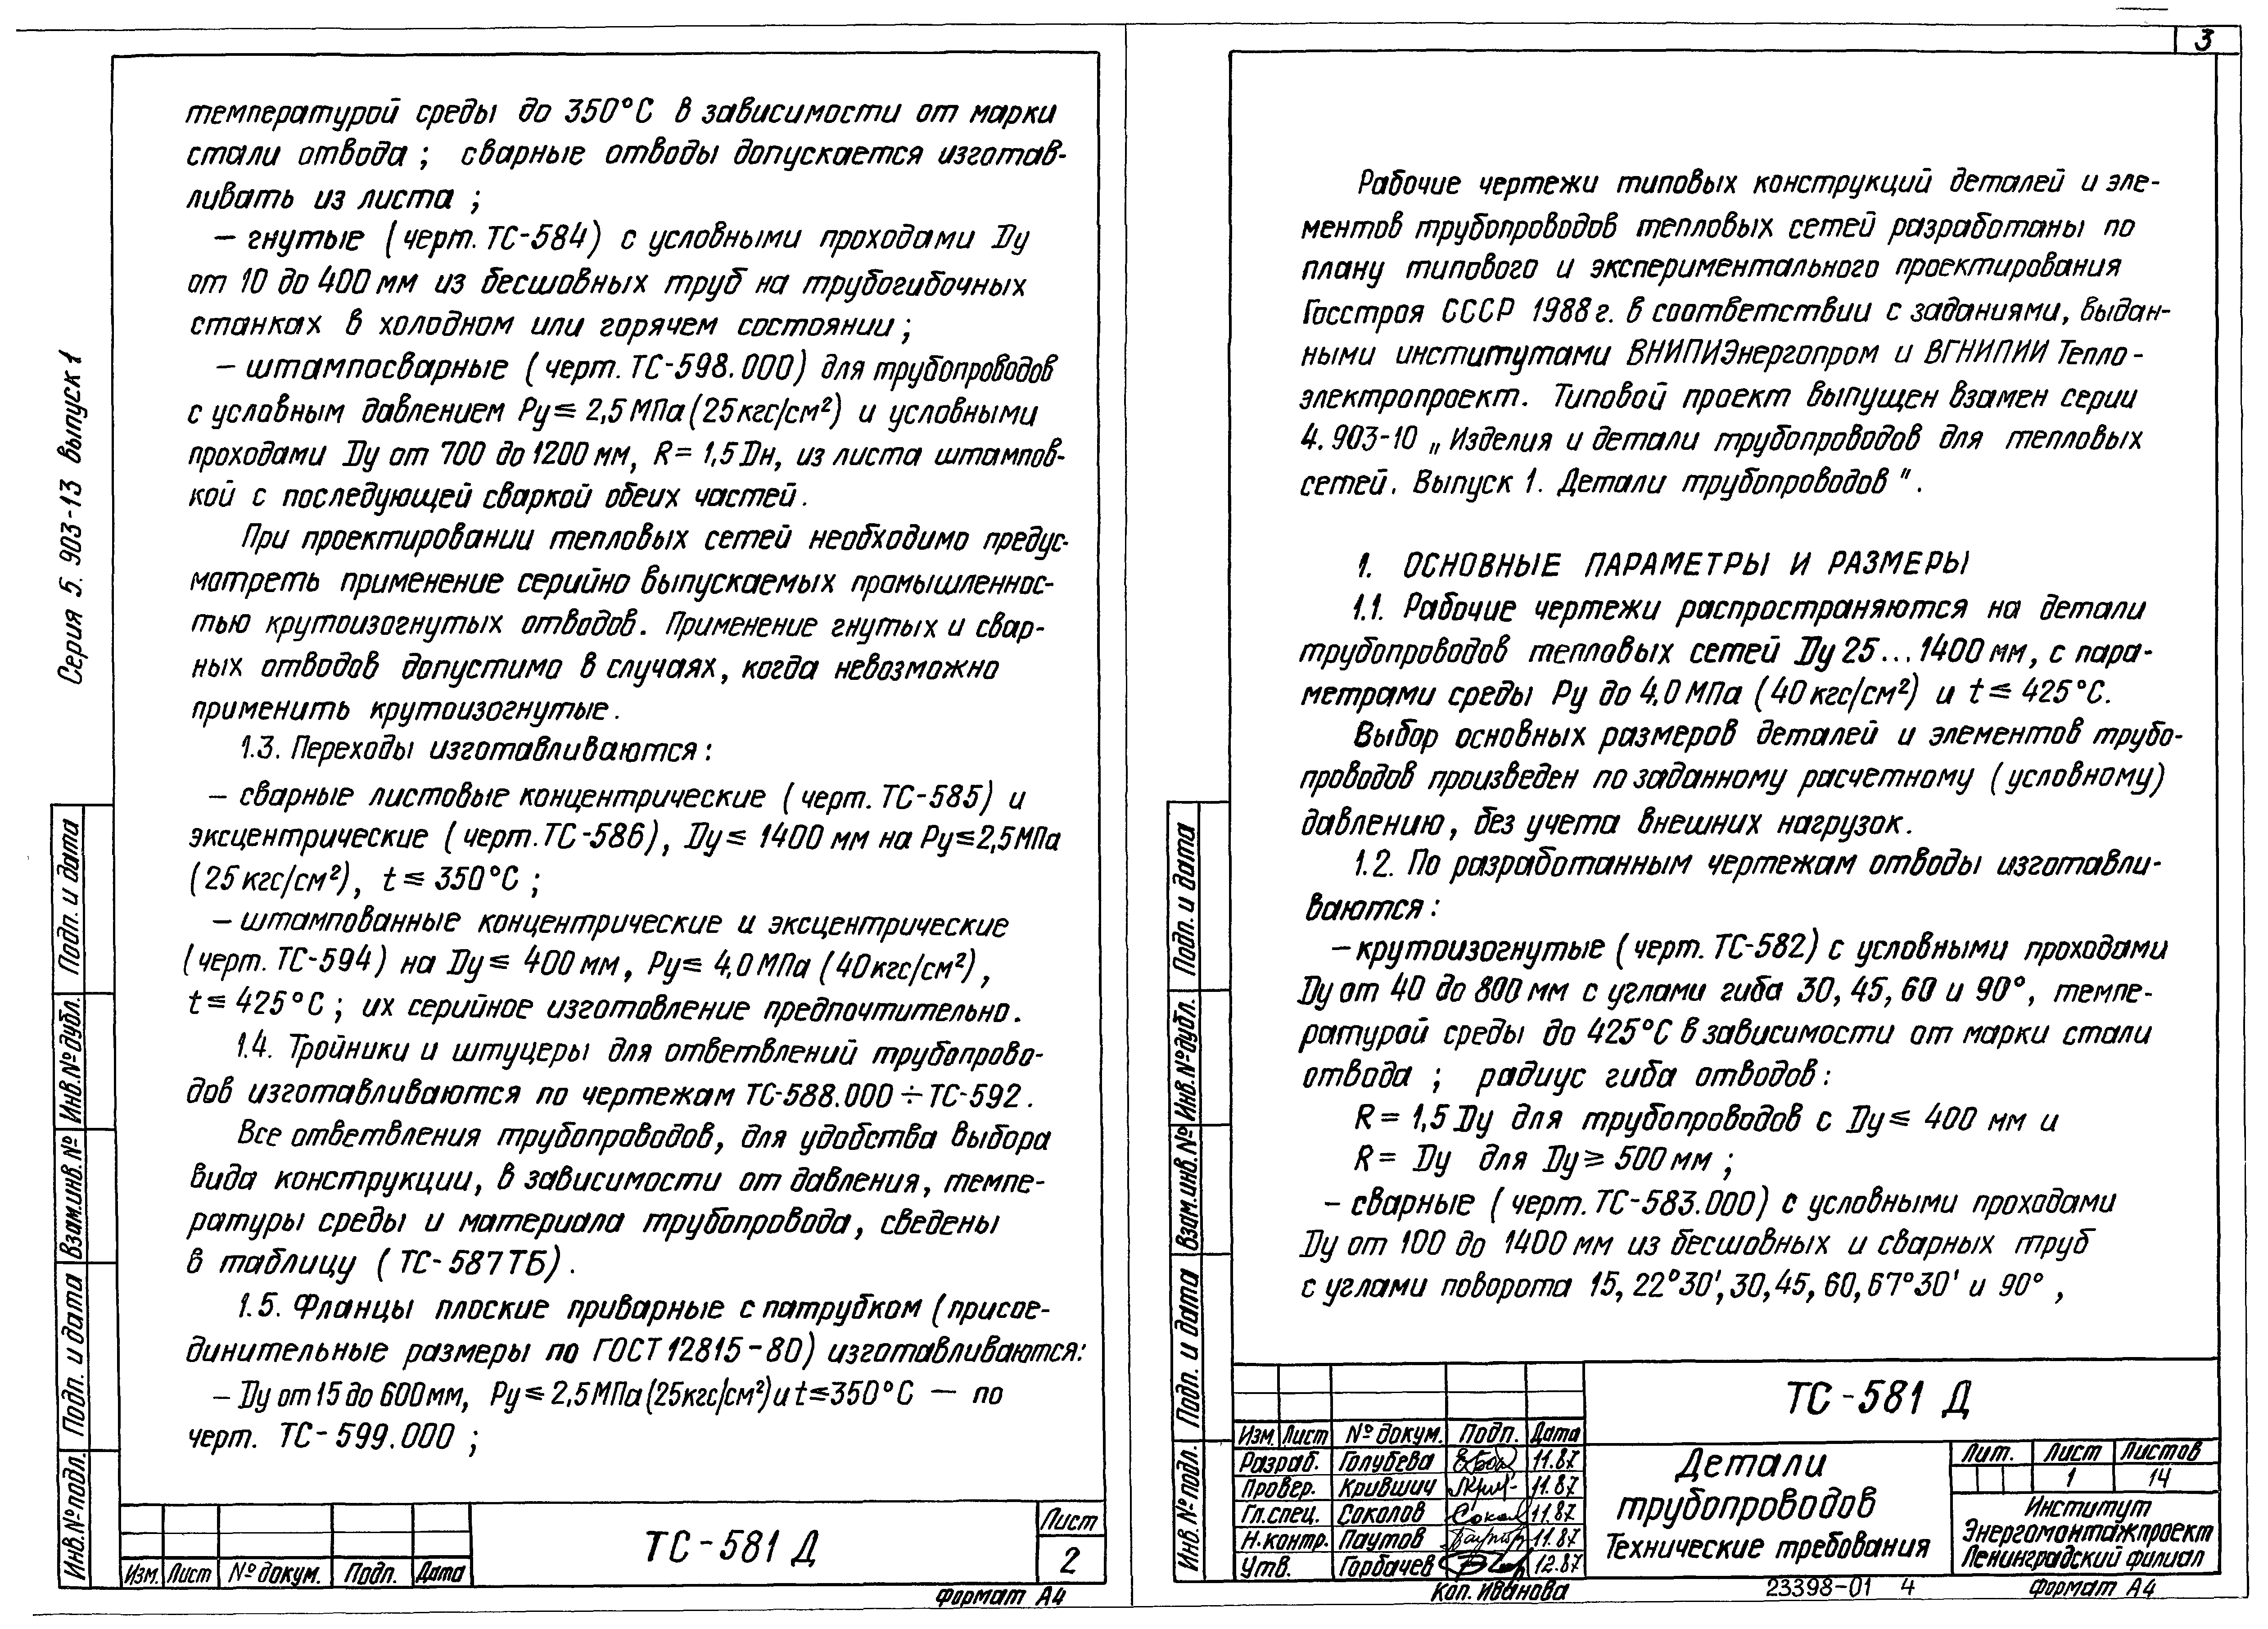 3
Серия 5.903-13 выпуск 1
температурой среды до 350°С в зависимости от марки
стали отвода ; сварные отводы допускается изготав-
ливать из листа ;
– гнутые (черт. ТС-584) с условными проходами Dу
от 10 до 400 мм из бесшовных труб на трубогибочных
станках в холодном или горячем состоянии ;
– штампосварные (черт. ТС-598.000) для трубопроводов
с условным давлением Ру ≤ 2,5 МПа (25 кгс/см²) и условными
проходами Dу от 700 до 1200 мм, R = 1,5 Dн, из листа штампов-
кой с последующей сваркой обеих частей.
При проектировании тепловых сетей необходимо предус-
мотреть применение серийно выпускаемых промышленнос-
тью крутоизогнутых отводов. Применение гнутых и свар-
ных отводов допустимо в случаях, когда невозможно
применить крутоизогнутые.
1.3. Переходы изготавливаются :
– сварные листовые концентрические (черт. ТС-585) и
эксцентрические (черт. ТС-586), Dу ≤ 1400 мм на Ру ≤ 2,5 МПа
(25 кгс/см²), t ≤ 350°С ;
– штампованные концентрические и эксцентрические
(черт. ТС-594) на Dу ≤ 400 мм, Ру ≤ 4,0 МПа (40 кгс/см²),
t ≤ 425°С ; их серийное изготовление предпочтительно.
1.4. Тройники и штуцеры для ответвлений трубопрово-
дов изготавливаются по чертежам ТС-588.000 ÷ ТС-592.
Все ответвления трубопроводов, для удобства выбора
вида конструкции, в зависимости от давления, темпе-
ратуры среды и материала трубопровода, сведены
в таблицу (ТС-587ТБ).
1.5. Фланцы плоские приварные с патрубком (присое-
динительные размеры по ГОСТ 12815-80) изготавливаются:
– Dу от 15 до 600 мм, Ру ≤ 2,5 МПа (25 кгс/см²) и t ≤ 350°С — по
черт. ТС-599.000 ;
Подп. и дата
Инв.№ дубл.
Взам.инв.№
Подп. и дата
Инв.№ подл.
Изм. Лист № докум. Подп. Дата
ТС-581 Д
Лист
2
Формат А4
Рабочие чертежи типовых конструкций деталей и эле-
ментов трубопроводов тепловых сетей разработаны по
плану типового и экспериментального проектирования
Госстроя СССР 1988 г. в соответствии с заданиями, выдан-
ными институтами ВНИПИЭнергопром и ВГНИПИИ Тепло-
электропроект. Типовой проект выпущен взамен серии
4.903-10 „Изделия и детали трубопроводов для тепловых
сетей. Выпуск 1. Детали трубопроводов".
1. ОСНОВНЫЕ ПАРАМЕТРЫ И РАЗМЕРЫ
1.1. Рабочие чертежи распространяются на детали
трубопроводов тепловых сетей Dу 25...1400 мм, с пара-
метрами среды Ру до 4,0 МПа (40 кгс/см²) и t ≤ 425°С.
Выбор основных размеров деталей и элементов трубо-
проводов произведен по заданному расчетному (условному)
давлению, без учета внешних нагрузок.
1.2. По разработанным чертежам отводы изготавли-
ваются :
– крутоизогнутые (черт. ТС-582) с условными проходами
Dу от 40 до 800 мм с углами гиба 30, 45, 60 и 90°, темпе-
ратурой среды до 425°С в зависимости от марки стали
отвода ; радиус гиба отводов :
R = 1,5 Dу для трубопроводов с Dу ≤ 400 мм и
R = Dу для Dу ≥ 500 мм ;
– сварные (черт. ТС-583.000) с условными проходами
Dу от 100 до 1400 мм из бесшовных и сварных труб
с углами поворота 15, 22°30', 30, 45, 60, 67°30' и 90° ,
Подп. и дата
Инв.№ дубл.
Взам.инв.№
Подп. и дата
Инв.№ подл.
ТС-581 Д
Изм. Лист № докум. Подп. Дата
Разраб. Голубева 11.87
Провер. Крившич 11.87
Гл.спец. Соколов 11.87
Н.контр. Паутов 11.87
Утв. Горбачев 12.87
Детали
трубопроводов
Технические требования
Лит. Лист Листов
1 14
Институт
Энергомонтажпроект
Ленинградский филиал
Коп. Иванова
23398-01 4
Формат А4